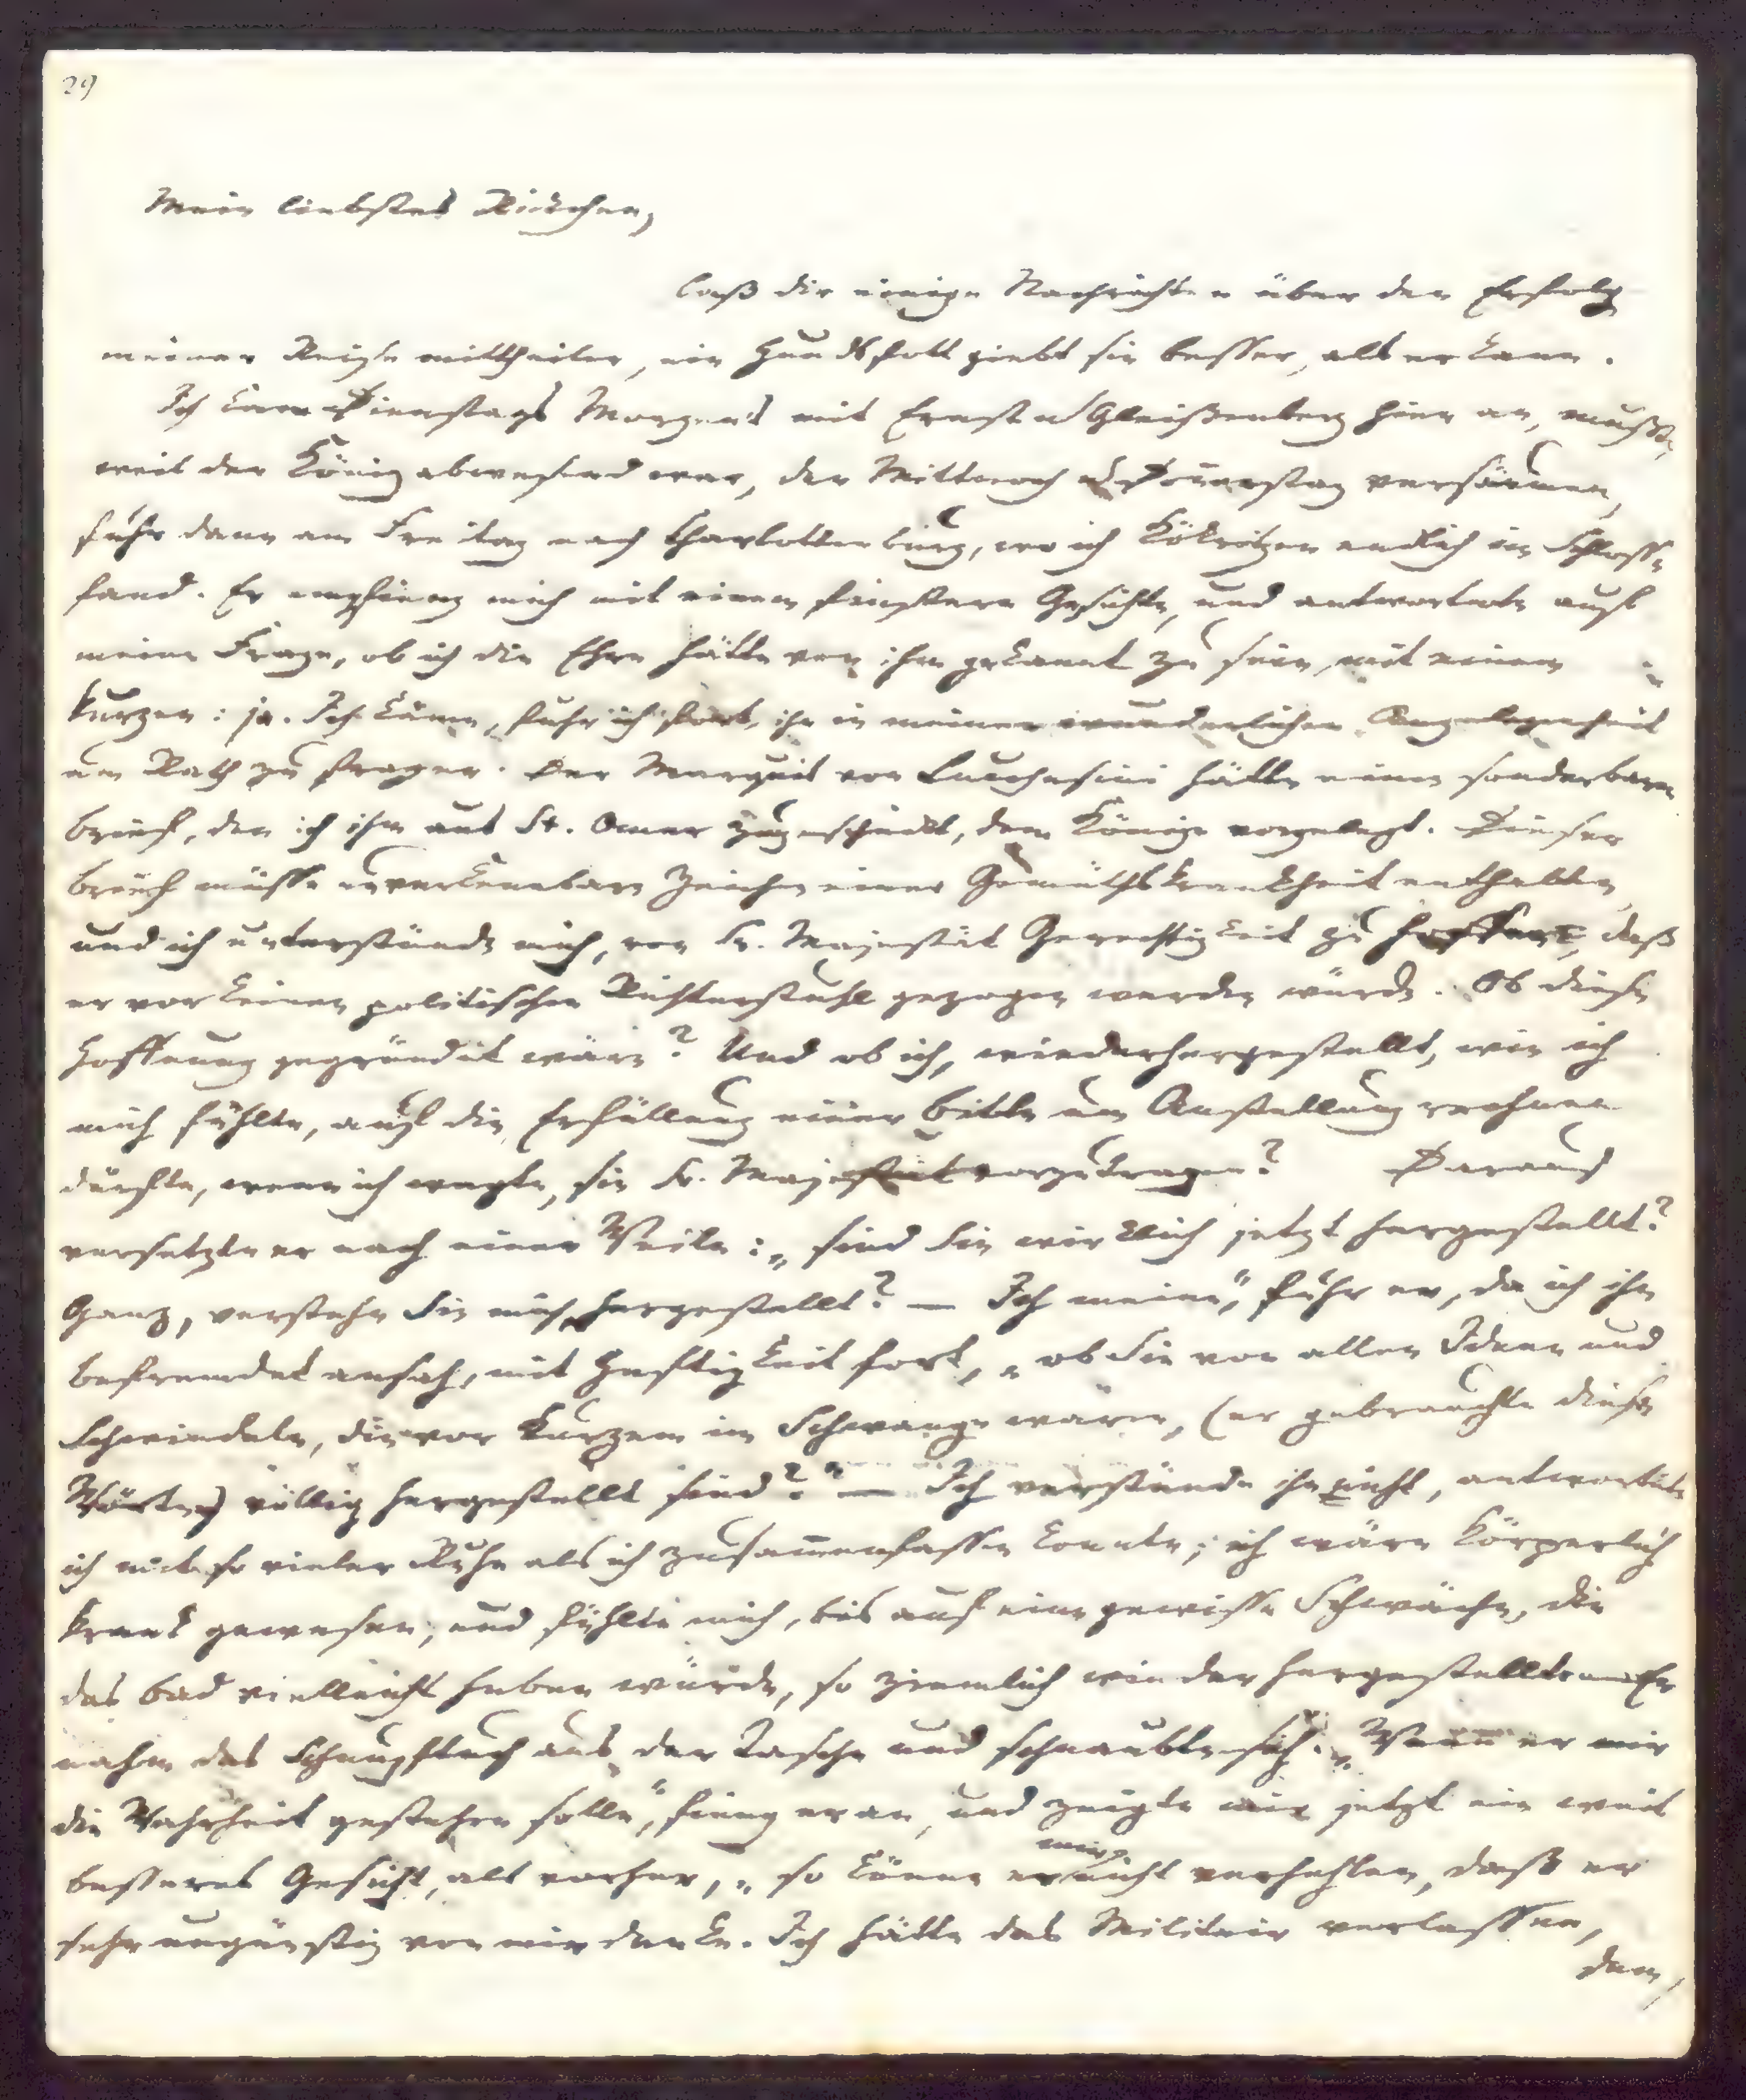 29
Mein liebstes Rickchen,
laß dir einige Nachrichten über den Erfolg
meiner Reise mittheilen, ein Hundsfott giebt sie besser, als er kann.
Ich kam Dienstags Morgens mit Ernst u Gleißenberg hier an, mußte,
weil der König abwesend war, den Mittwoch u Donnerstag versäumen,
fuhr dann am Freitag nach Charlottenburg, wo ich Kökritzen endlich im Schlosse
fand. Er empfieng mich mit einem finstern Gesichte, und antwortete auf
meine Frage, ob ich die Ehre hätte von ihm gekannt zu sein, mit einem
kurzen: ja. Ich käme, fuhr ich fort, ihn in meiner wunderlichen Angelegenheit
um Rath zu fragen. Der Marquis von Lucchesini hätte einen sonderbaren
Brief, den ich ihm aus St. Omer zugeschickt, dem Könige vorgelegt. Dieser
Brief müsse unverkennbare Zeichen einer Gemüthskrankheit enthalten,
und ich unterstünde mich, von Sr. Majestät Gerechtigkeit zu hoffen, daß
er vor keinen politischen Richterstuhl gezogen werden würde. Ob diese
Hoffnung gegründet wäre? Und ob ich, wiederhergestellt, wie ich
mich fühlte, auf die Erfüllung einer Bitte um Anstellung rechnen
dürfte, wenn ich wagte, sie Sr. Majestät vorzutragen? Darauf
versetzte er nach einer Weile: „sind Sie wirklich jetzt hergestellt?
Ganz, verstehn Sie mich, hergestellt? — Ich meine", fuhr er, da ich ihn
befremdet ansah, mit Heftigkeit fort, „ob Sie von allen Ideen und
Schwindeln, die vor Kurzem im Schwange waren, (er gebrauchte diese
Wörter) völlig hergestellt sind?" — Ich verstünde ihn nicht, antwortete
ich mit so vieler Ruhe als ich zusammenfassen konnte; ich wäre körperlich
krank gewesen, und fühlte mich, bis auf eine gewisse Schwäche, die
das Bad vielleicht heben würde, so ziemlich wieder hergestellt. — Er
nahm das Schnupftuch aus der Tasche und schnaubte sich. „Wenn er mir
die Wahrheit gestehen solle", fieng er an, und zeigte mir jetzt ein weit
besseres Gesicht, als vorher, „so könne er mir nicht verhehlen, daß er
sehr ungünstig von mir denke. Ich hätte das Militair verlassen,
dem